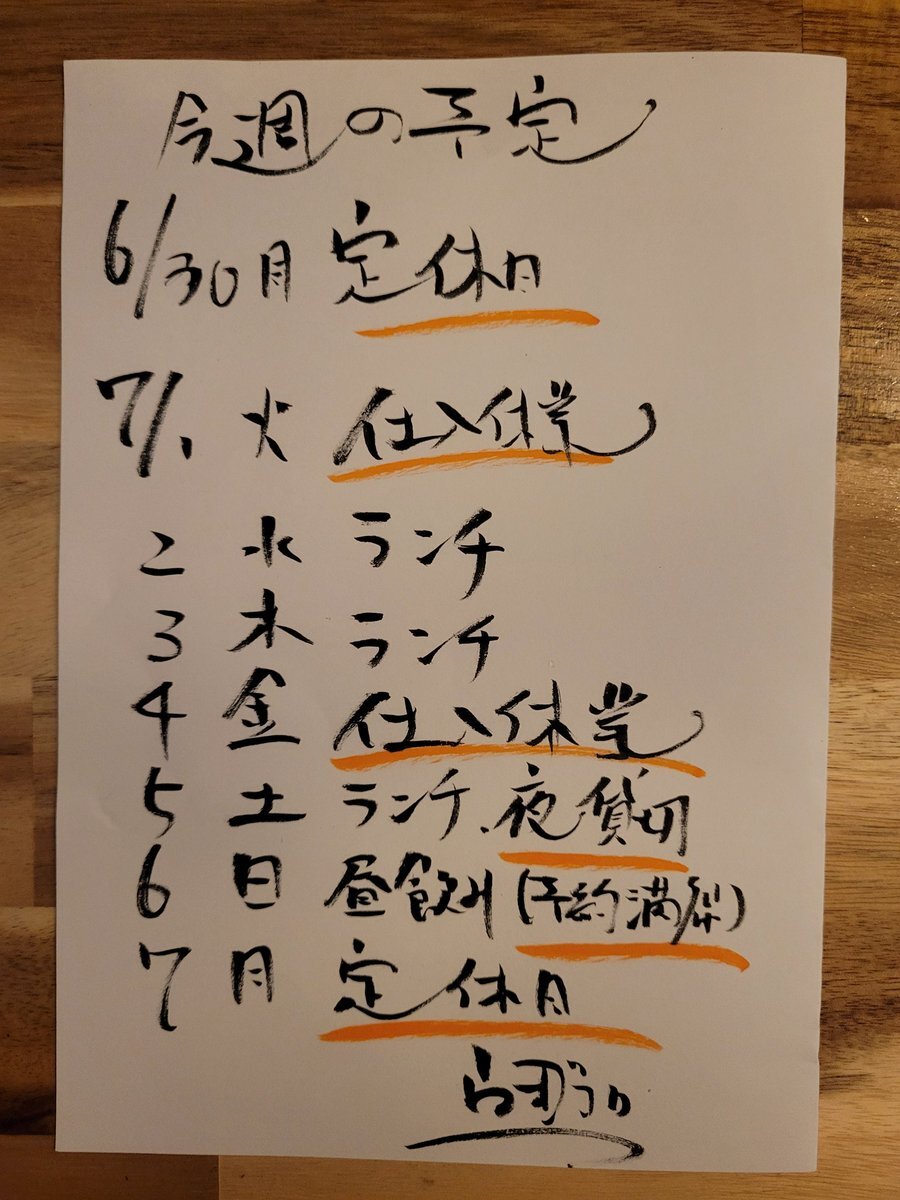 今週の予定
6/30月 定休日
7/1 火 仕入休業
2 水 ランチ
3 木 ランチ
4 金 仕入休業
5 土 ランチ、夜貸切
6 日 昼飲み(予約満席)
7 月 定休日